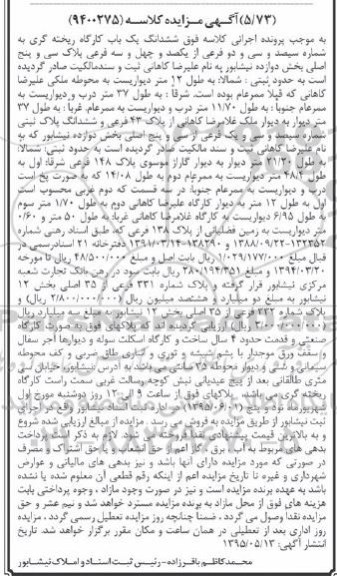 (۵/۷۳) آگهی مزایده کلاسه (۹۴۰۰۲۷۵)
به موجب پرونده اجرائی کلاسه فوق ششدانگ یک باب کارگاه ریخته گری به
شماره سیصد و سی و دو فرعی از یکصد و چهل و سه فرعی پلاک سی و پنج
اصلی بخش دوازده نیشابور به نام علیرضا کاهانی ثبت و سندمالکیت صادر گردیده
است به حدود ثبتی : شمالا: به طول ۱۲ متر دیواریست به محوطه ملکی علیرضا
کاهانی که قبلا ممرعام بوده است. شرقا : به طول ۳۷ متر درب و دیواریست به
ممرعام جنوبا : به طول ۱۱/۷۰ متر درب و دیواریست به ممرعام. غربا : به طول ۳۷
متر دیوار به دیوار ملک غلامرضا کاهانی از پلاک ۴۳ فرعی و ششدانگ پلاک ثبتی
شماره سیصد و سی و یک فرعی از سی و پنج اصلی بخش دوازده نیشابور که به
نام علیرضا کاهانی ثبت و سند مالکیت صادر گردیده است به حدود ثبتی: شمالا:
به طول ۲۱/۴۰ متر دیوار به دیوار گاراژ موسوی پلاک ۱۴۸ فرعی شرقا: اول به
طول ۴۸/۲ متر دیواریست به ممرعام دوم به طول ۱۴/۰۸ که به صورت پخ است
درب و دیواریست به ممرعام جنوبا: در سه قسمت که دوم غربی محسوب است
اول به طول ۱۲ متر به دیوار کارگاه علیرضا کاهانی دوم به طول ۱/۷۰ متر سوم
به طول ۶/۹۵ دیواریست به کارگاه غلامرضا کاهانی غربا: به طول ۵۰ متر و ۰/۶۰
متر دیواریست به زمین فضلیانی از پلاک ۱۳۸ فرعی که طبق اسناد رهنی شماره
۱۳۲۳۵۲-۱۳۸۸/۰۹/۲۲ و ۱۳۸۲۹۰-۱۳۹۱/۰۳/۱۴ دفترخانه ۲۱ اسنادرسمی در
قبال مبلغ ۱/۰۲۹/۱۷۷/۰۰۰ ریال بابت اصل و مبلغ ۴۸/۵۰۰/۰۰۰ ریال تا مورخه
۱۳۹۴/۰۳/۲۰ و مبلغ ۲۸۰/۱۹۴/۳۵۱ ریال بابت سود در رهن بانک تجارت شعبه
مرکزی نیشابور قرار گرفته و پلاک شماره ۳۳۱ فرعی از ۳۵ اصلی بخش ۱۲
نیشابور به مبلغ دو میلیارد و هشتصد میلیون ریال (۲/۸۰۰/۰۰۰/۰۰۰ ریال) و
پلاک شماره ۳۳۲ فرعی از ۳۵ اصلی بخش ۱۲ نیشابور به مبلغ سه میلیارد ریال
(۳/۰۰۰/۰۰۰/۰۰۰ ریال) ارزیابی گردیده اند که پلاکهای فوق به صورت کارگاه
صنعتی و قدمت حدود ۴ سال ساخت و کارگاه اسکلت سوله و دیوارها آجر سفال
وسقف ورق موجدار با پشم شیشه و توری و کناری طاق ضربی و کف محوطه
سیمانی و شنی و دیوار محوطه ۲۵ سانتی می باشد به آدرس نیشابور، خیابان ۸۰
متری طالقانی بعد از پیچ عیدیانی نبش کوچه رسالت غربی سمت راست کارگاه
ریخته گری می باشد. پلاکهای فوق از ساعت ۹ الی ۱۲ روز دوشنبه مورخ اول
شهریورماه نود و پنج (۱۳۹۵/۰۶/۰۱) در اداره ثبت اسناد نیشابور واقع در اجرای
ثبت نیشابور از طریق مزایده به فروش می رسد. مزایده از مبالغ ارزیابی شده شروع
و به بالاترین قیمت پیشنهادی نقدا فروخته می شود. لازم به ذکر است پرداخت
بدهی های مربوط به آب، برق، گاز اعم از حق انشعاب و یا حق اشتراک و مصرف
در صورتی که مورد مزایده دارای آنها باشد و نیز بدهی های مالیاتی و عوارض
شهرداری و غیره تا تاریخ مزایده اعم از اینکه رقم قطعی آن معلوم شده یا نشده
باشد به عهده برنده مزایده است و نیز در صورت وجود مازاد، وجوه پرداختی بابت
هزینه های فوق از محل مازاد به برنده مزایده مسترد خواهد شد و نیم عشر و حق
مزایده نقدا وصول می گردد. ضمنا چنانچه روز مزایده تعطیل رسمی گردد، مزایده
روز اداری بعد از تعطیلی در همان ساعت و مکان مقرر برگزار خواهد شد. تاریخ
انتشار آگهی: ۱۳۹۵/۰۵/۱۳
محمدکاظم باقرزاده-رئیس ثبت اسناد و املاک نیشابور